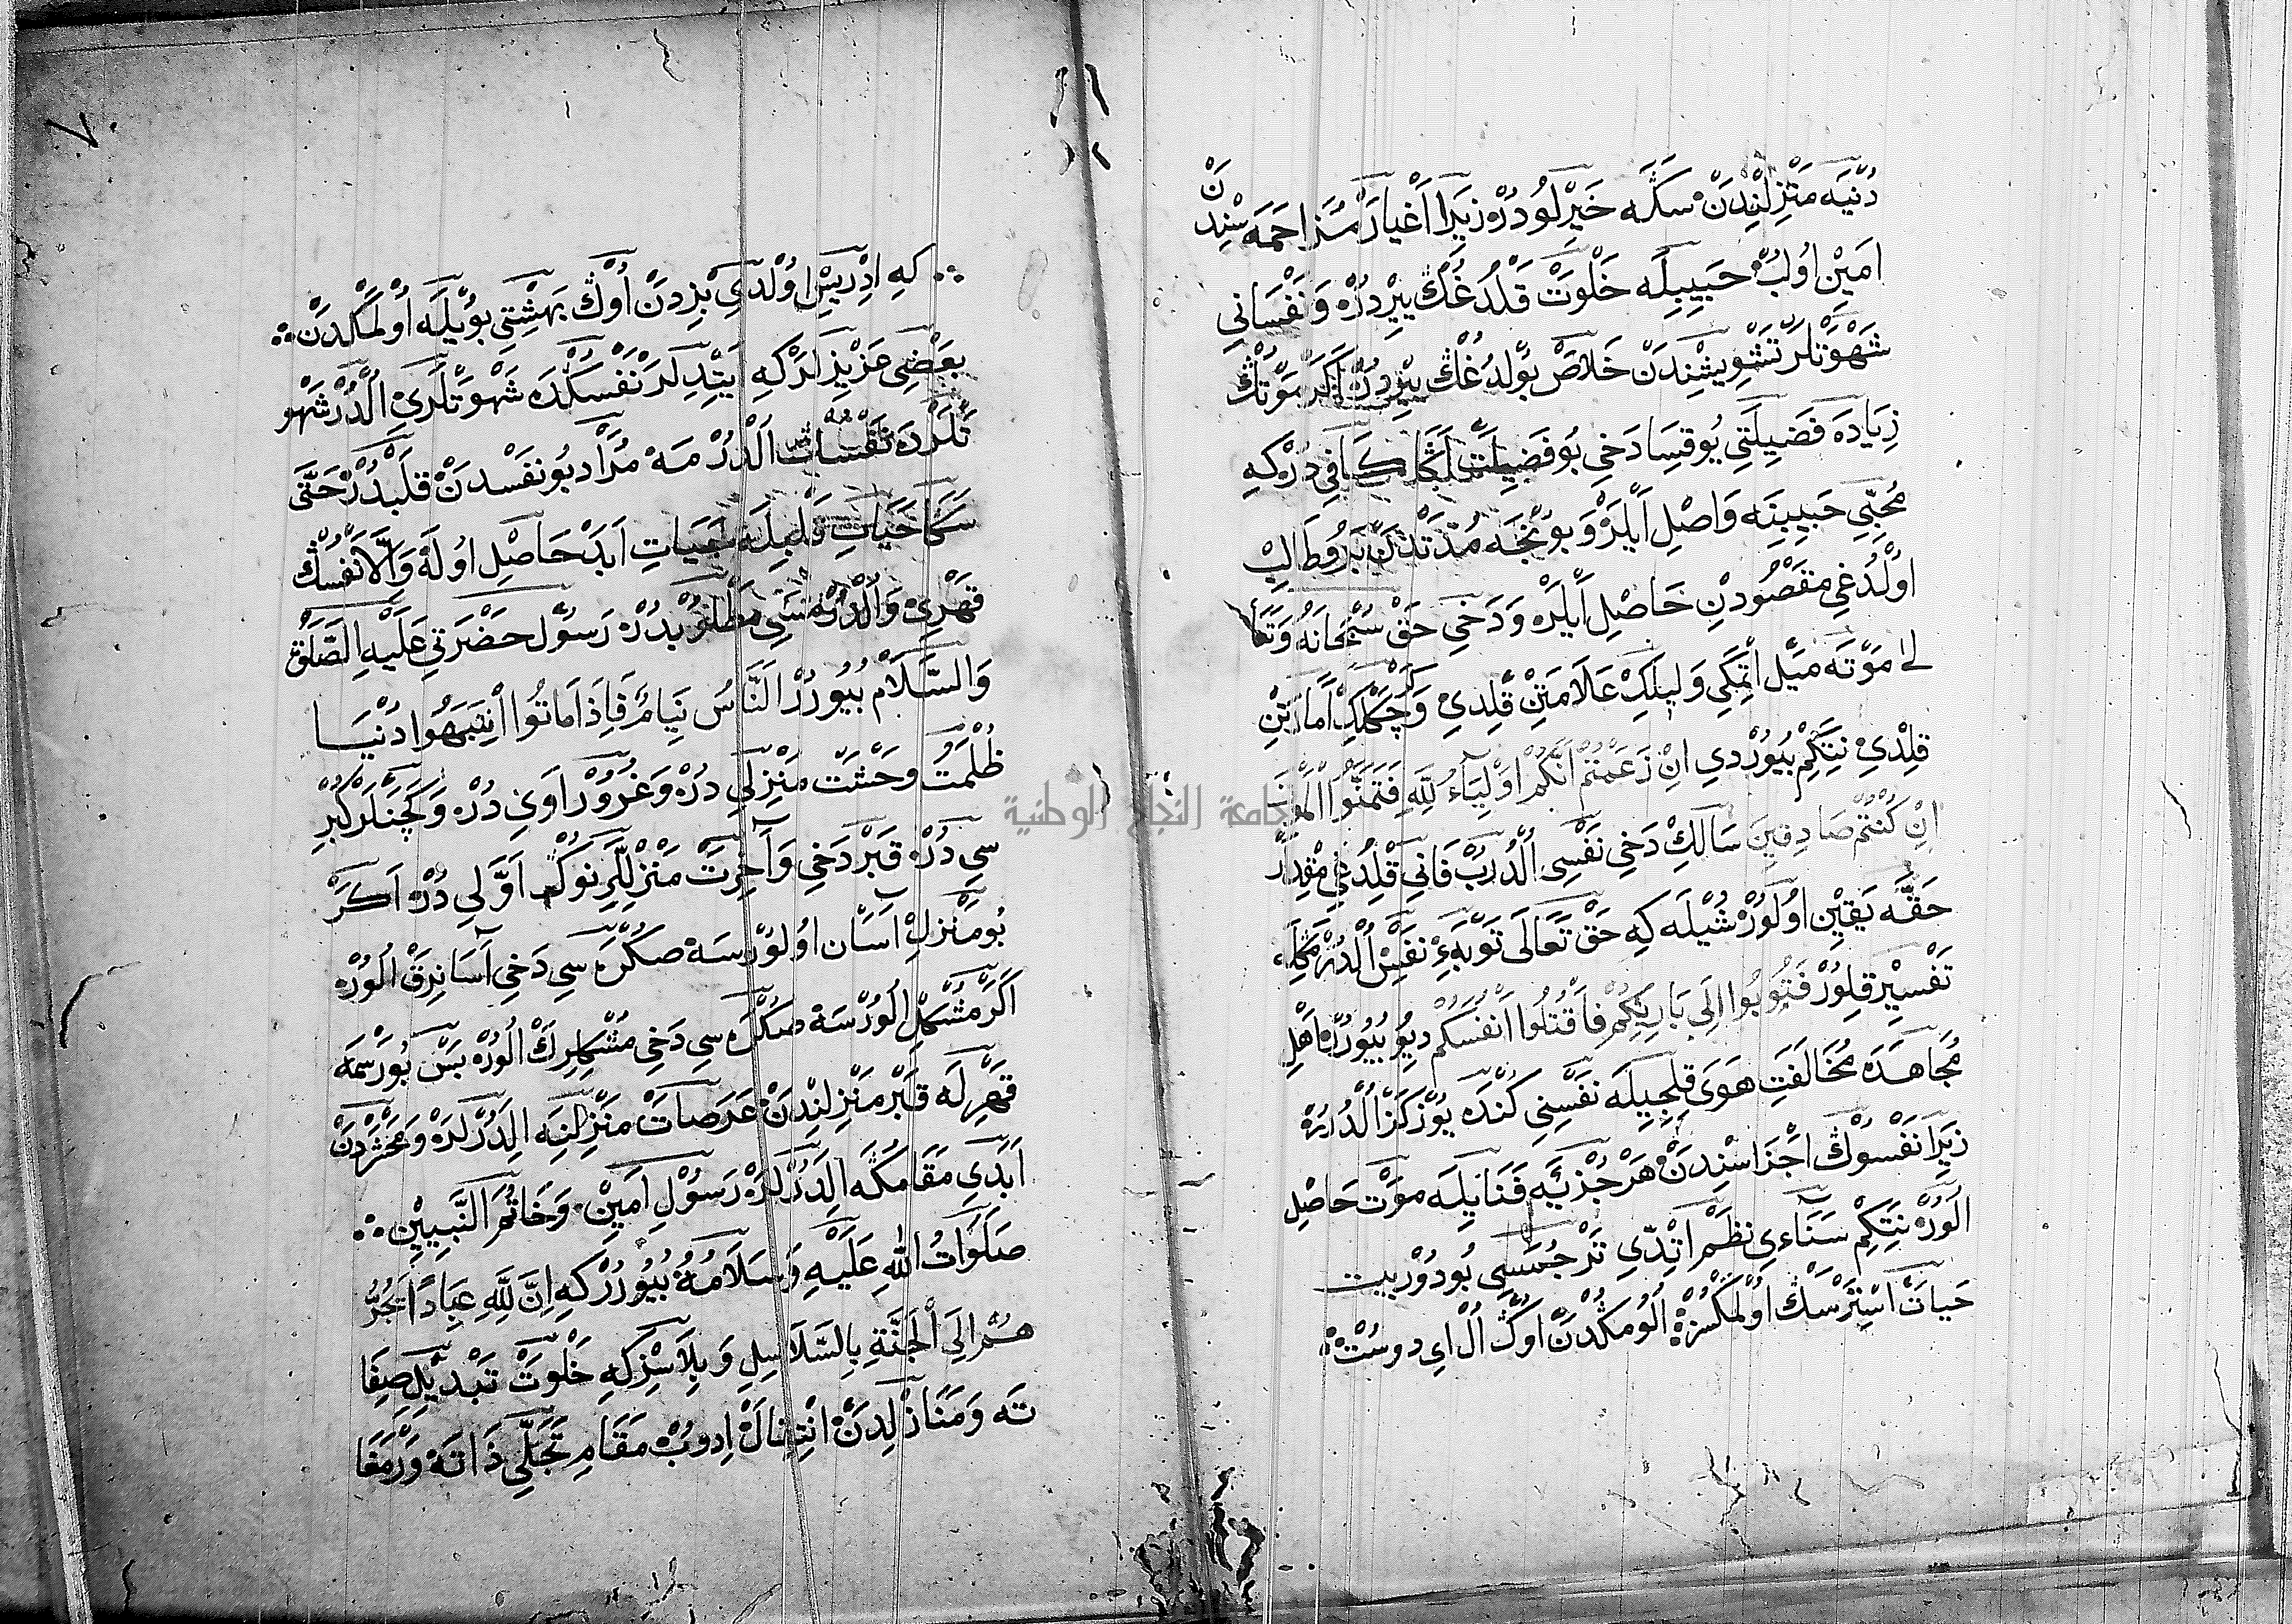 دُنْيَه مَنْزِلْنِدَنْ سَكَه خَيْرلُو دُرْ زِيرَا اَغْيَارْ مُزَاحَمَه سْنِدَنْ
اَمِينْ اُولُبْ حَبِيبِلَه خَلْوَتْ قَلْدُغُكْ يِيرْدُرْ وَنَفْسَانِي
شَهْوَتْلَرْ تَشْوِيشِنْدَنْ خَلَاصْ بُولْدُغُكْ يِيرْدُرْ اَكَرْ مَوْتِكْ
زِيَادَه فَضِيلَتِي يُوقِسَا دَخِي بُو فَضِيلَتْ كَافِي دُرْ كِه
مُحِبِّي حَبِيبِنَه وَاصِلْ اَيْلَرْ وَبُونْجَه مُدَّتْدَنْ بَرُو طَالِبْ
اُولْدُغِي مَقْصُودِنْ حَاصِلْ اَيْلَرْ وَدَخِي حَقْ سُبْحَانَهُ وَتَعَا
لَى مَوْتَه مَيْلْ اِتْمَكِي وَلِيلِكْ عَلَامَتِنْ قِلْدِي وَكَرْجَكْلِكْ اَمَارَتِنْ
قِلْدِي نِتَكِمْ بُيُورْدِي اِنْ زَعَمْتُمْ اَنَّكُمْ اَوْلِيَاءُ لِلَّهِ فَتَمَنَّوُا الْمَوْتَ
اِنْ كُنْتُمْ صَادِقِينَ سَالِكْ دَخِي نَفْسِي اُلْدُرُبْ فَانِي قِلْدُغِي مِقْدَارْ
حَقَّه يَقِينْ اُولُورْ شُيْلَه كِه حَقْ تَعَالَى تَوْبَهءِ نَفْسْ اُلْدُرْمَكِلَه
تَفْسِيرْ قِلُورْ فَتُوبُوا اِلَى بَارِئِكُمْ فَاقْتُلُوا اَنْفُسَكُمْ دِيُو بُيُورُرْ اَهْلِ
مُجَاهَدَه مُخَالَفَتِ هَوَى قِلْجِيلَه نَفْسِنِي كُنْدَه يُوزْ كَزْ اُلْدُرُرْ
زِيرَا نَفْسُوكْ اَجْزَاسْنِدَنْ هَرْ جُزْئِيَه فَنَايِلَه مَوْتْ حَاصِلْ
اُلُورْ نِتَكِمْ سَنَاءِي نَظْمْ اِتْدِي تَرْجُمَسِي بُودُوْر بيت
حَيَاتْ اِسْتَرْسَكْ اُولْمَكْسُزْ اُلُومُكْدَنْ اُوكْ اُلْ اِي دوسْتْ
كِه اِدْرِيسْ اُولْدِي بِزْدَنْ اُوكْ بَهِشْتِي بُويْلَه اُولْمَكْدَنْ
بَعْضِي عَزِيزْلَرْ كِه اَيِتْدِيلَرْ نَفْسُكْدَه شَهْوَتْلَرِي اُلْدُرْ شَهْوَ
تْلَرْدَه نَفْسَكْ اُلْدُرْمَه مُرَادْ بُو نَفْسْدَنْ قَلْبْدُرْ حَتَّى
سَكَا حَيَاتِ قَلْبِلَه حَيَاتِ اَبَدْ حَاصِلْ اُولَه وَاِلَّا نَفْسُكْ
قَهْرِي وَاُلْدُرْمَسِي مَطْلُوبْدُرْ رَسُولْ حَضْرَتِي عَلَيْهِ الصَّلَوةُ
وَالسَّلَامْ بُيُورُرْ اَلنَّاسُ نِيَامٌ فَاِذَا مَاتُوا اَنْتَبَهُوا دُنْيَا
ظُلْمَتْ وَحْشَتْ مَنْزِلِي دُرْ وَغُرُورْ اَوِي دُرْ وَكَچَنْلَرْ كُبْرِ
سِي دُرْ قَبْرْ دَخِي وَآخِرَتْ مَنْزِلْلَرِنُوكْ اَوَّلِي دُرْ اَكَرْ
بُو مَنْزِلْ آسَانْ اُولُورْسَه صُكْرَه سِي دَخِي آسَانِرَقْ اُلُورْ
اَكَرْ مُشْكِلْ اُلُورْسَه صُكْرَه سِي دَخِي مُشْكِلْرَكْ اُلُورْ بَسْ بُو رَسْمَه
قَهْرِلَه قَبْرْ مَنْزِلِنْدَنْ عَرَصَاتْ مَنْزِلِنَه اِلَدُرْلَرْ وَمَحْشَرْدَنْ
اَبَدِي مَقَامَكَه اِلَدُرْلَرْ رَسُولِ اَمِينْ وَخَاتَمَ النَّبِيِّينْ
صَلَوَاتُ اللهِ عَلَيْهِ وَسَلَامُهُ بُيُورُرْ كِه اِنَّ لِلَّهِ عِبَادًا يَجُرُّ
هُمْ اِلَى الْجَنَّةِ بِالسَّلَاسِلِ وَبِلَاسِزْ كِه خَلْوَتْ تَبْدِيلِ صِفَا
تَه وَمَنَازِلْدَنْ اِنْتِقَالْ اِدُوبْ مَقَامِ تَجَلِّي ذَاتَه وَرْمَغَا
جامعة النجاح الوطنية